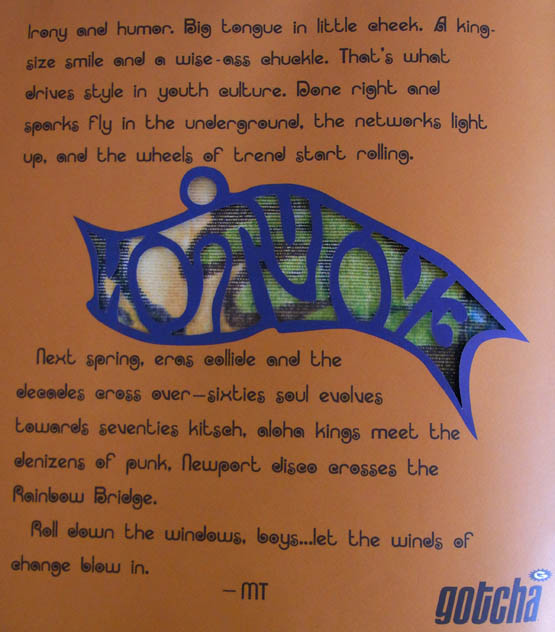 Irony and humor. Big tongue in little cheek. A king-
size smile and a wise-ass chuckle. That's what
drives style in youth culture. Done right and
sparks fly in the underground, the networks light
up, and the wheels of trend start rolling.
Next spring, eras collide and the
decades cross over—sixties soul evolves
towards seventies kitsch, aloha kings meet the
denizens of punk, Newport disco crosses the
Rainbow Bridge.
Roll down the windows, boys...let the winds of
change blow in.
— MT
gotcha